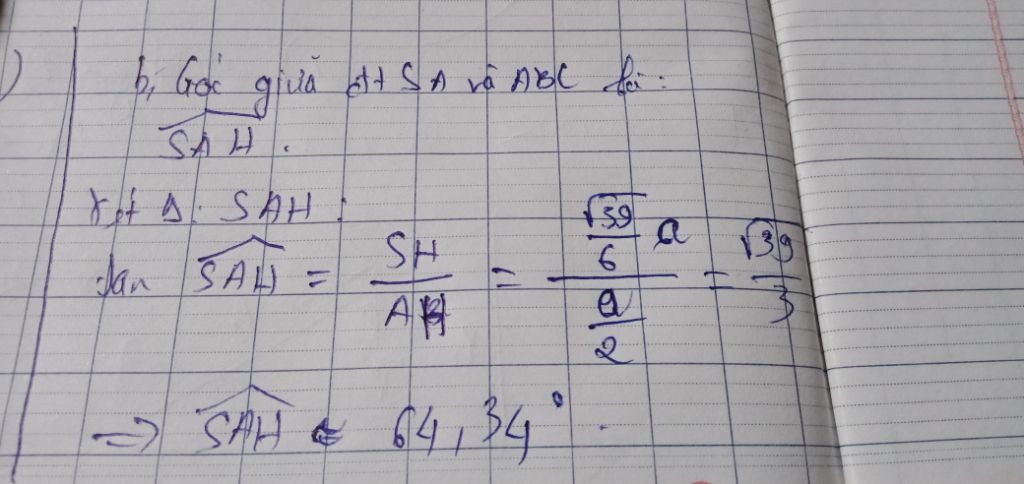 b, Góc giữa đt SA và ABC là:
SAH.
Xét Δ: SAH:
tan SAH = SH / AH = (√39 / 6 a) / (a / 2) = √39 / 3
=> SAH = 64,34°.